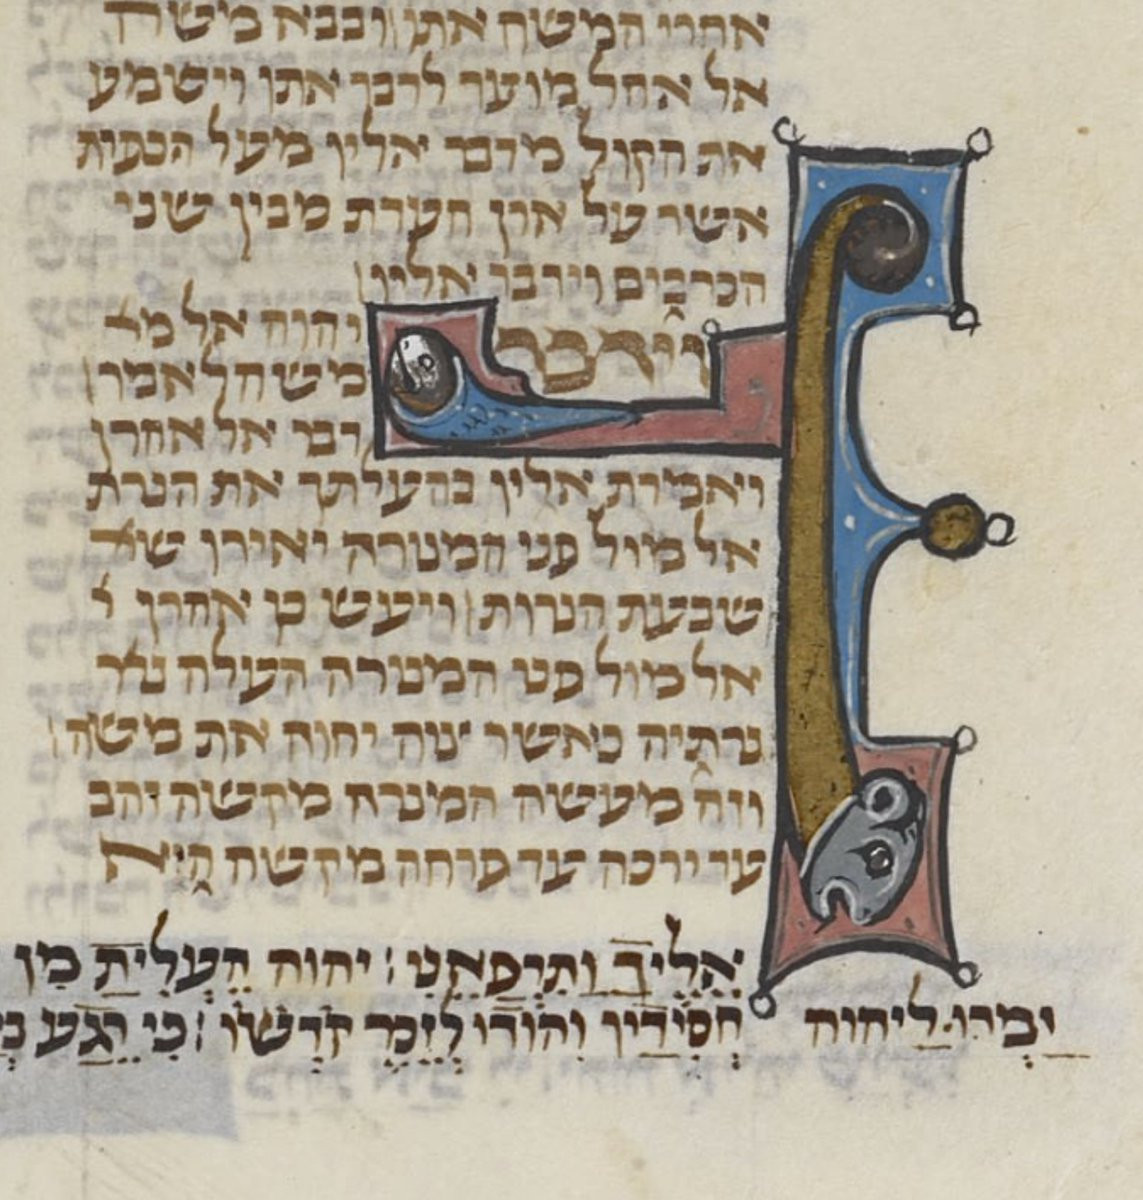 אחרי המשח אתו ובבא משה
אל אהל מועד לדבר אתו וישמע
את הקול מדבר אליו מעל הכפרת
אשר על ארן העדת מבין שני
הכרבים וידבר אליו
וידבר יהוה אל מ
משה לאמר
דבר אל אהרן
ואמרת אליו בהעלתך את הנרת
אל מול פני המנורה יאירו ש
שבעת הנרות ויעש כן אהרן
אל מול פני המנורה העלה נ
נרתיה כאשר צוה יהוה את משה
וזה מעשה המנרה מקשה זהב
עד ירכה עד פרחה מקשה היא
אֵלֶיךָ וַתִּרְפָּאֵנִי׃ יהוה הֶעֱלִיתָ מִן
זַמְּרוּ לַיהוה חֲסִידָיו וְהוֹדוּ לְזֵכֶר קָדְשׁוֹ׃ כִּי רֶגַע